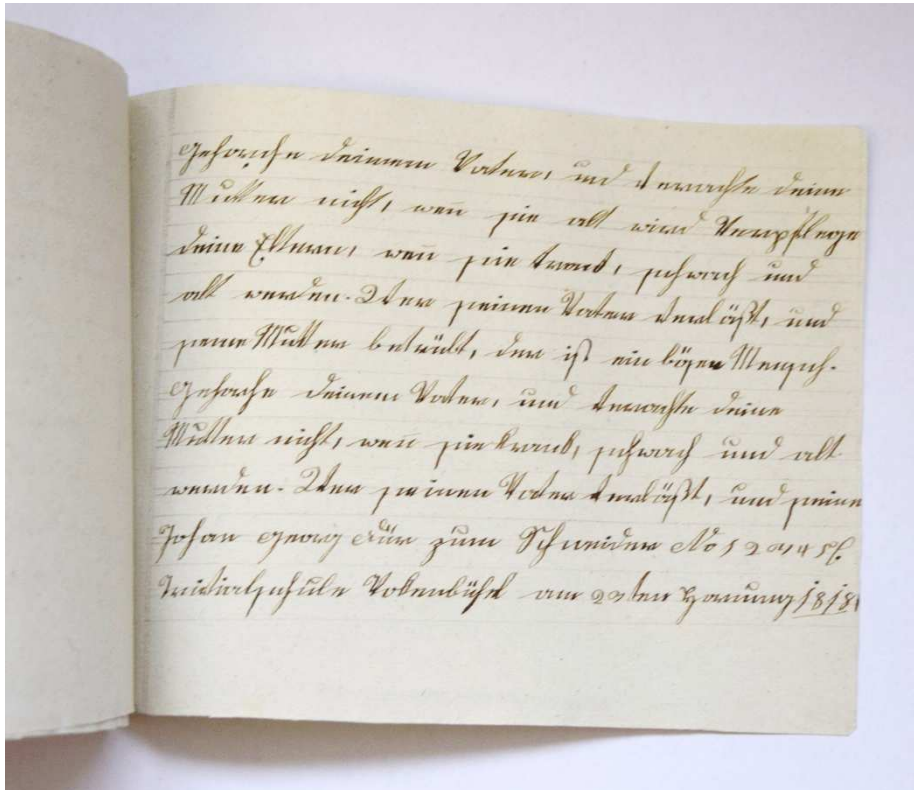 Gehorche deinem Vater, und verachte deine
Mutter nicht, weñ sie alt wird Verpflege
deine Eltern, weñ sie krank, schwach und
alt werden. Wer seinen Vater verläßt, und
seine Mutter betrübt, der ist ein böser Mensch.
Gehorche deinem Vater, und verachte deine
Mutter nicht, weñ sie krank, schwach und alt
werden. Wer seinen Vater verläßt, und seine
Johan Georg zum Schneider No
Trivialschule am ten Hornung 1818